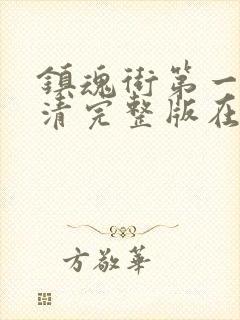 鎮魂街第一
清完整版在
方敬華